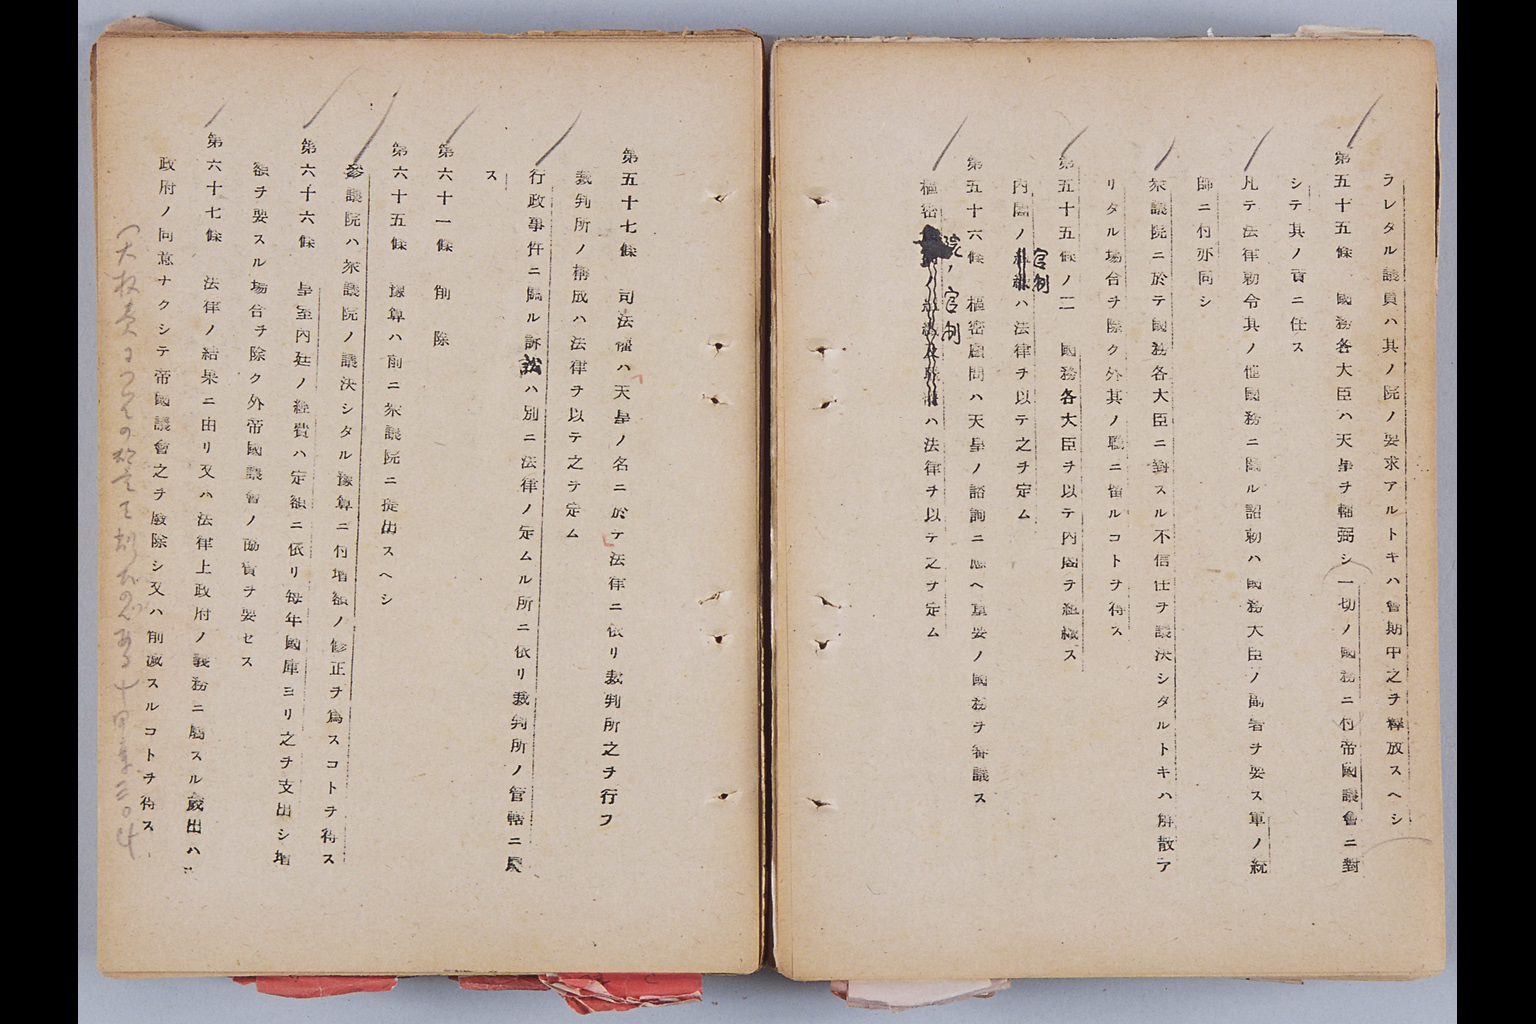 ラレタル議員ハ其ノ院ノ要求アルトキハ會期中之ヲ釋放スヘシ
第五十五條 國務各大臣ハ天皇ヲ輔弼シ一切ノ國務ニ付帝國議會ニ對
シテ其ノ責ニ任ス
凡テ法律勅令其ノ他國務ニ關ル詔勅ハ國務大臣ノ副署ヲ要ス軍ノ統
帥ニ付亦同シ
衆議院ニ於テ國務各大臣ニ對スル不信任ヲ議決シタルトキハ解散ア
リタル場合ヲ除ク外其ノ職ニ留ルコトヲ得ス
第五十五條ノ二 國務各大臣ヲ以テ內閣ヲ組織ス
內閣ノ官制ハ法律ヲ以テ之ヲ定ム
第五十六條 樞密顧問ハ天皇ノ諮詢ニ應ヘ重要ノ國務ヲ審議ス
樞密院ノ官制ハ法律ヲ以テ之ヲ定ム
第五十七條 司法權ハ天皇ノ名ニ於テ法律ニ依リ裁判所之ヲ行フ
裁判所ノ構成ハ法律ヲ以テ之ヲ定ム
行政事件ニ關ル訴訟ハ別ニ法律ノ定ムル所ニ依リ裁判所ノ管轄ニ屬
ス
第六十一條 削除
第六十五條 豫算ハ前ニ衆議院ニ提出スヘシ
參議院ハ衆議院ノ議決シタル豫算ニ付增額ノ修正ヲ爲スコトヲ得ス
第六十六條 皇室內廷ノ經費ハ定額ニ依リ每年國庫ヨリ之ヲ支出シ增
額ヲ要スル場合ヲ除ク外帝國議會ノ協贊ヲ要セス
第六十七條 法律ノ結果ニ由リ又ハ法律上政府ノ義務ニ屬スル歲出ハ
政府ノ同意ナクシテ帝國議會之ヲ廢除シ又ハ削減スルコトヲ得ス